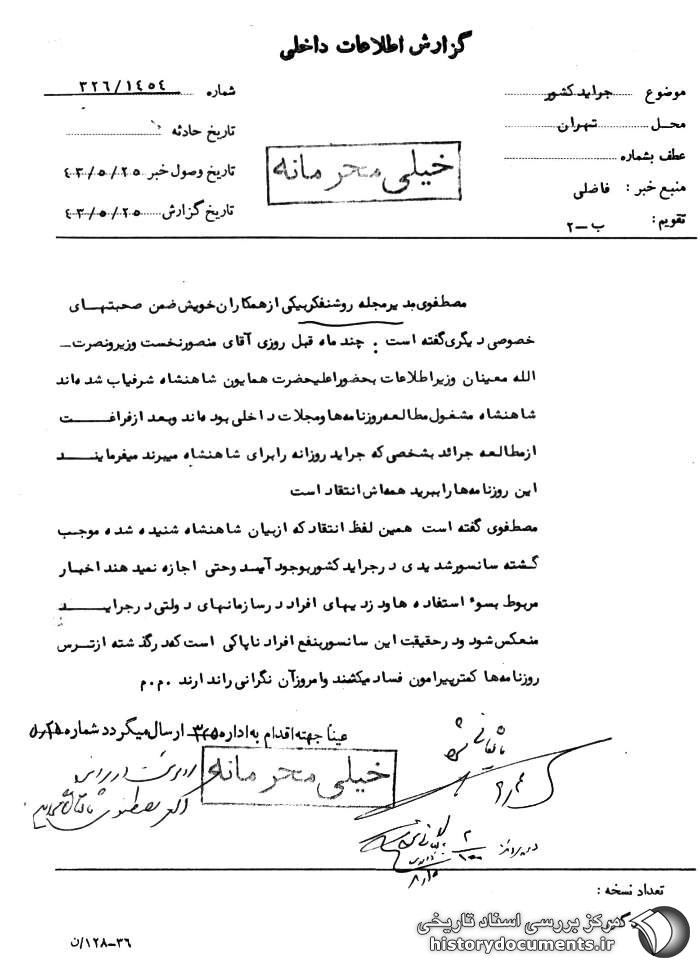 گزارش اطلاعات داخلی
موضوع جراید کشور
شماره ۳۲۶/۱۴۵۴
محل تهران
تاریخ حادثه
عطف بشماره
تاریخ وصول خبر ۴۳/۵/۲۵
منبع خبر : فاضلی
تاریخ گزارش ۴۳/۵/۲۵
تقویم : ب-۲
خیلی محرمانه
مصطفوی مدیر مجله روشنفکر بیکی از همکاران خویش ضمن صحبتهای
خصوصی دیگری گفته است : چند ماه قبل روزی آقای منصور نخست وزیر و نصرت
الله معینیان وزیر اطلاعات بحضور اعلیحضرت همایون شاهنشاه شرفیاب شده اند
شاهنشاه مشغول مطالعه روزنامه ها و مجلات داخلی بوده اند و بعد از فراغت
از مطالعه جرائد بشخصی که جراید روزانه را برای شاهنشاه میبرند میفرمایند
این روزنامه ها را ببرید همه اش انتقاد است
مصطفوی گفته است همین لفظ انتقاد که از بیان شاهنشاه شنیده شده موجب
گشته سانسور شدیدی در جراید کشور بوجود آید و حتی اجازه نمیدهند اخبار
مربوط بسوء استفاده ها و دزدیهای افراد در سازمانهای دولتی در جراید
منعکس شود و در حقیقت این سانسور بنفع افراد ناپاکی است که در گذشته از ترس
روزنامه ها کمتر پیرامون فساد میگشتند و امروز آن نگرانی را ندارند م.م.
عیناً جهته اقدام به اداره ۳۲۵ ارسال میگردد شماره
خیلی محرمانه
تعداد نسخه :
۳۶-۱۲۸/ن
مرکز بررسی اسناد تاریخی
historydocuments.ir